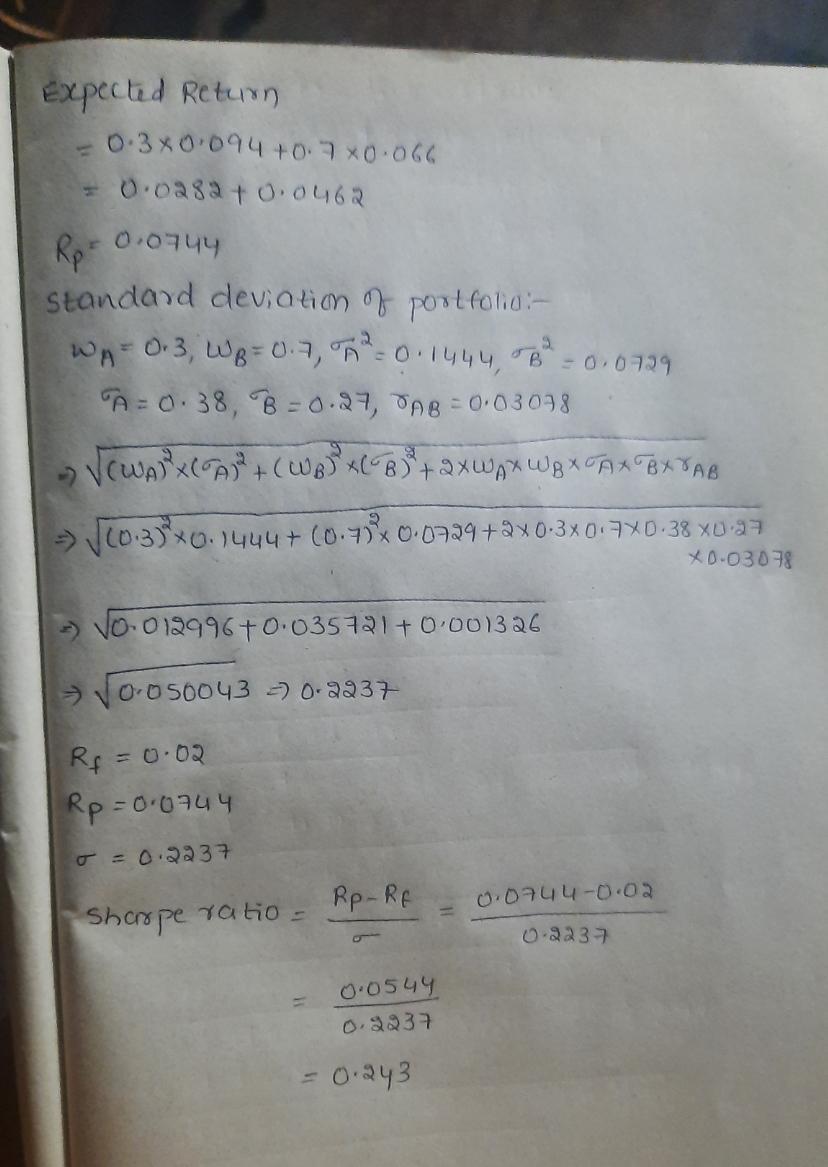 Expected Return
= 0.3×0.094+0.7×0.066
= 0.0282+0.0462
Rp= 0.0744
Standard deviation of portfolio:-
WA= 0.3, WB= 0.7, σA²= 0.1444, σB²= 0.0729
σA= 0.38, σB= 0.27, rAB= 0.03078
⇒ √(WA)²×(σA)²+(WB)²×(σB)²+2×WA×WB×σA×σB×rAB
⇒ √(0.3)²×0.1444+(0.7)²×0.0729+2×0.3×0.7×0.38×0.27
×0.03078
⇒ √0.012996+0.035721+0.001326
⇒ √0.050043 ⇒ 0.2237
Rf = 0.02
Rp = 0.0744
σ = 0.2237
Sharpe ratio = Rp-Rf/σ = 0.0744-0.02/0.2237
= 0.0544/0.2237
= 0.243